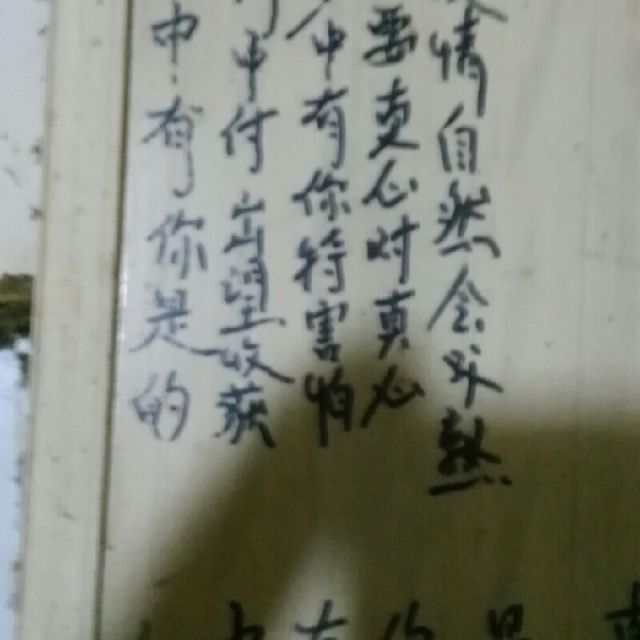 中有你是的
中付出望收获
中有你特害怕
要真心对真心
情自然会熟